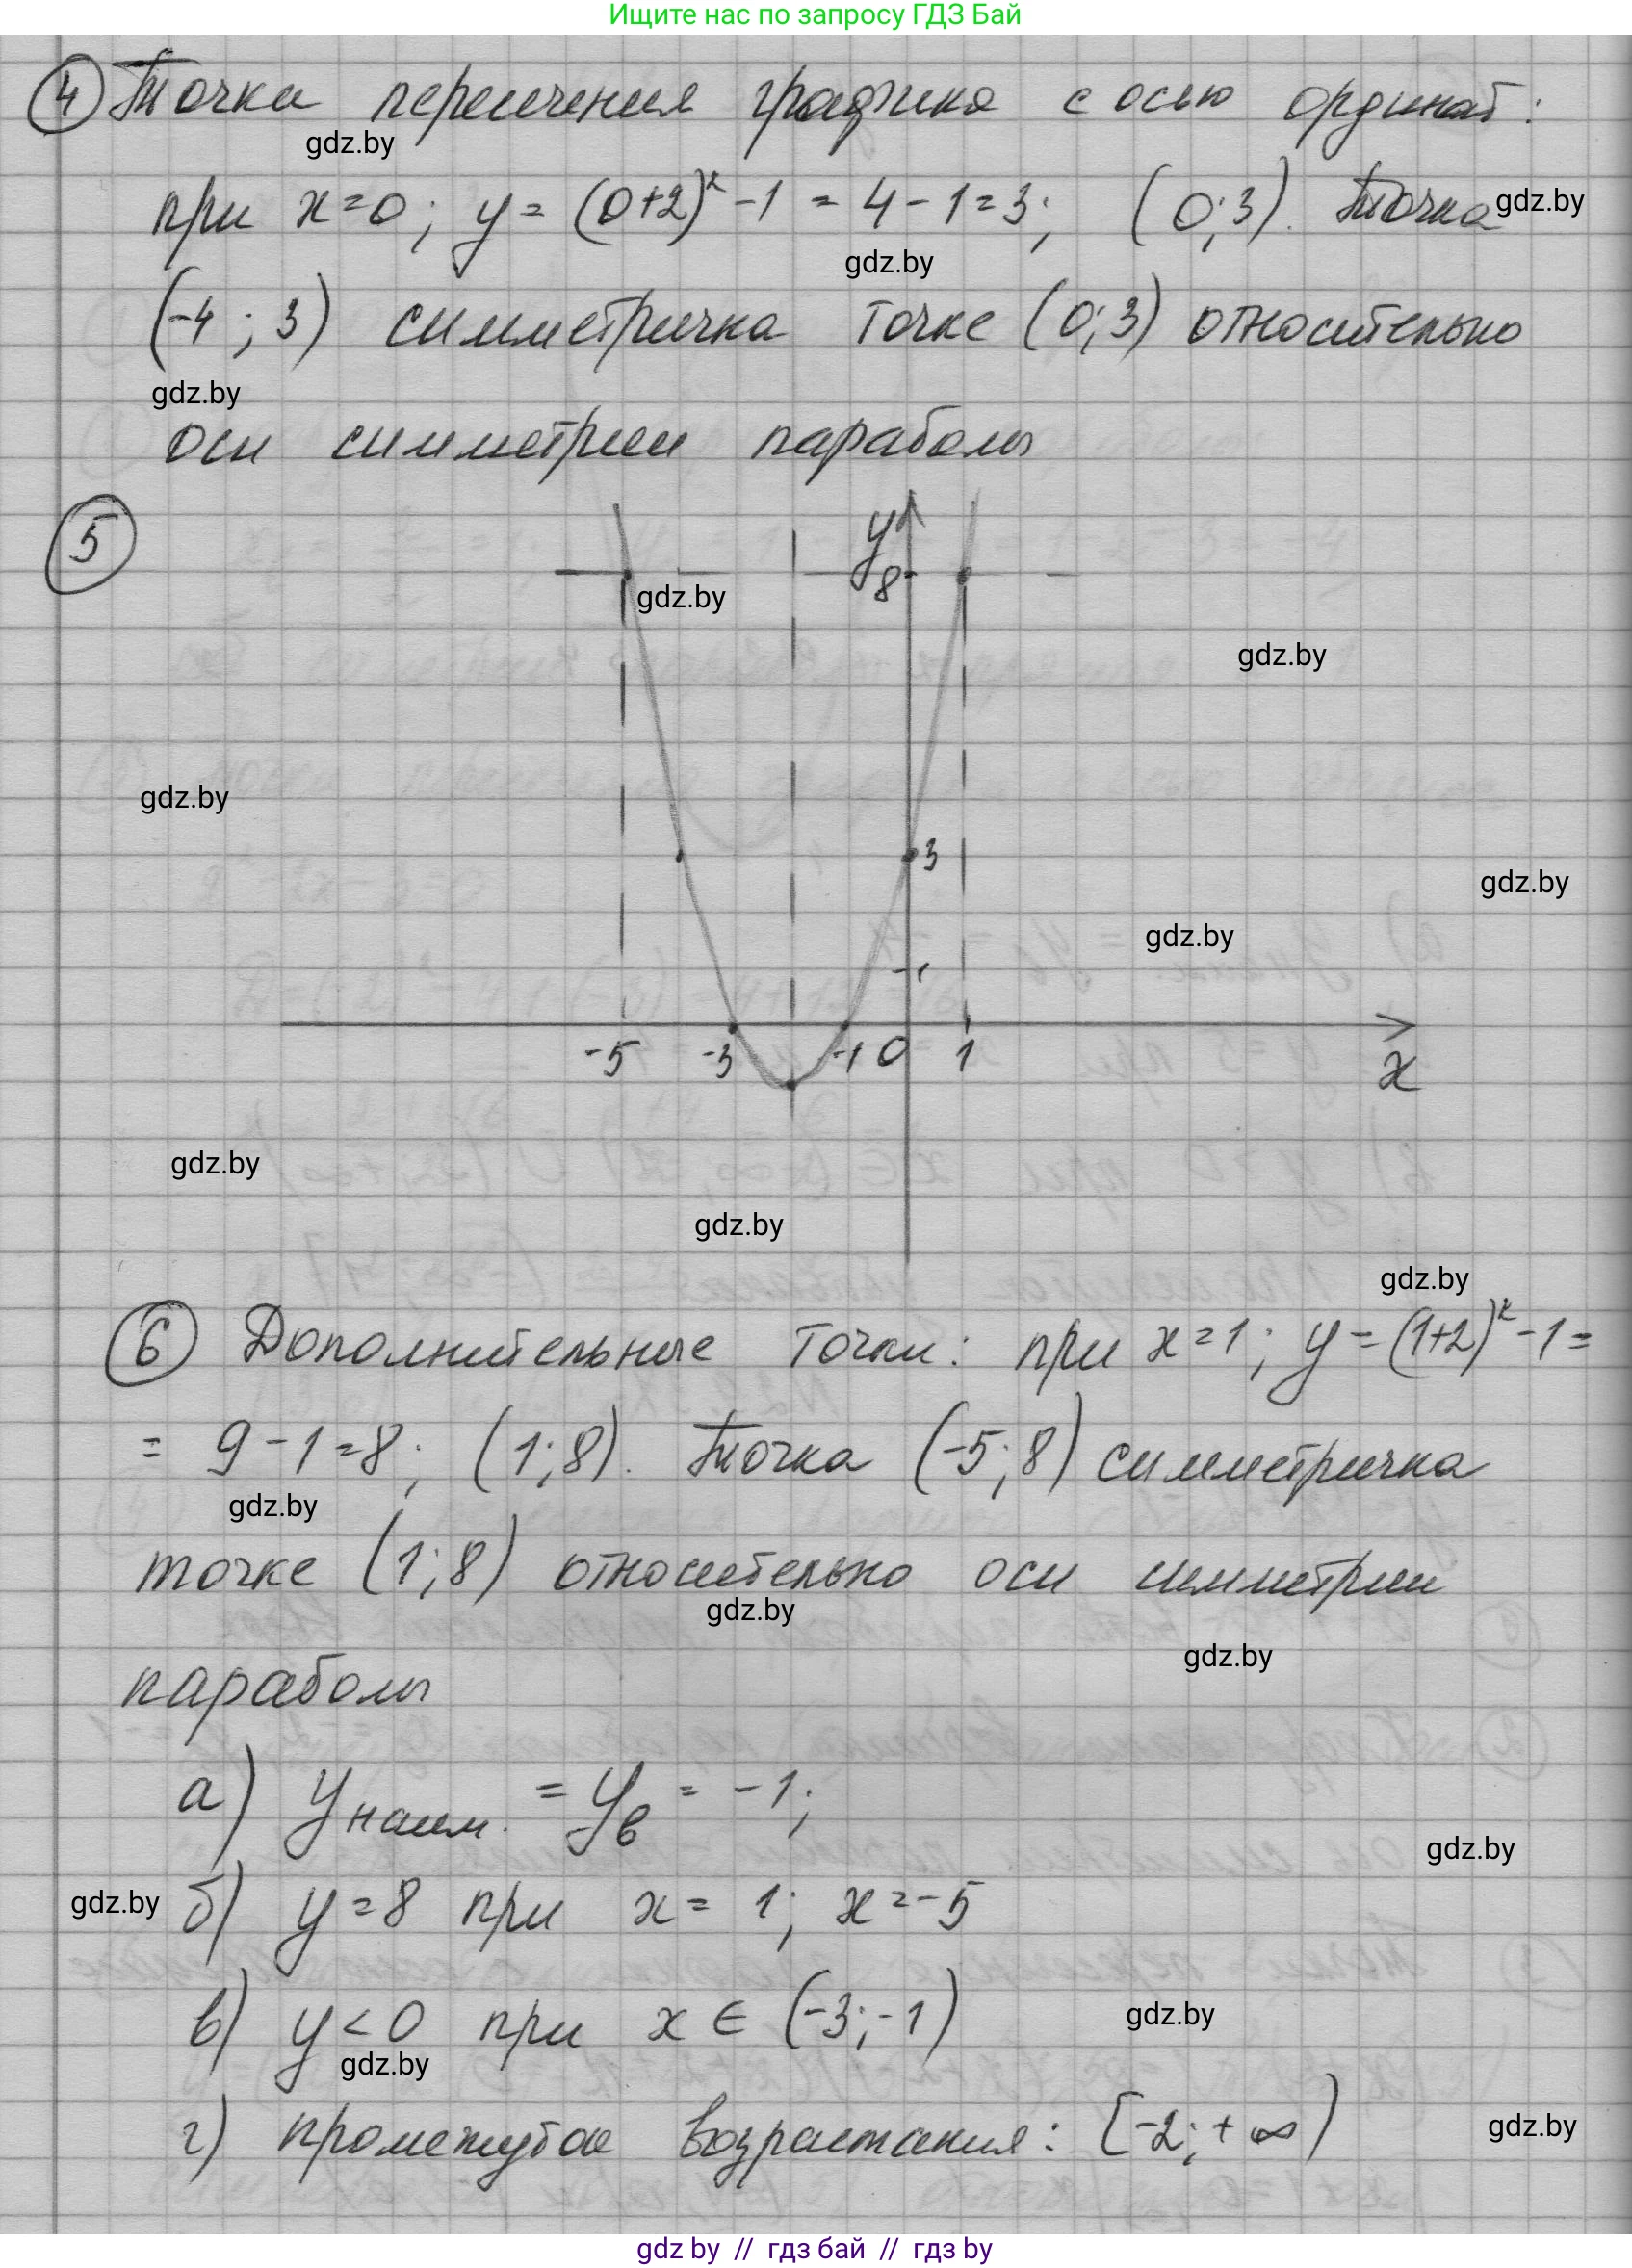 Ищите нас по запросу ГДЗ Бай
④ Точки пересечения графика с осью ординат:
gdz.by
при x=0; y=(0+2)²-1=4-1=3; (0;3). Точка gdz.by
gdz.by
(-4;3) симметрична точке (0;3) относительно
gdz.by
оси симметрии параболы
⑤
y
8
gdz.by
gdz.by
gdz.by
3
gdz.by
gdz.by
1
-5 -3 -1 0 1 x
gdz.by
gdz.by
gdz.by
⑥ Дополнительные точки: при x=1; y=(1+2)²-1=
=9-1=8; (1;8). Точка (-5;8) симметрична
gdz.by
точке (1;8) относительно оси симметрии
gdz.by
gdz.by
параболы
а) yнаим. = yв = -1;
gdz.by
gdz.by б) y=8 при x=1; x=-5
в) y<0 при x∈(-3;-1) gdz.by
gdz.by
г) промежуток возрастания: [-2;+∞) gdz.by
gdz by // гдз бай // гдз by